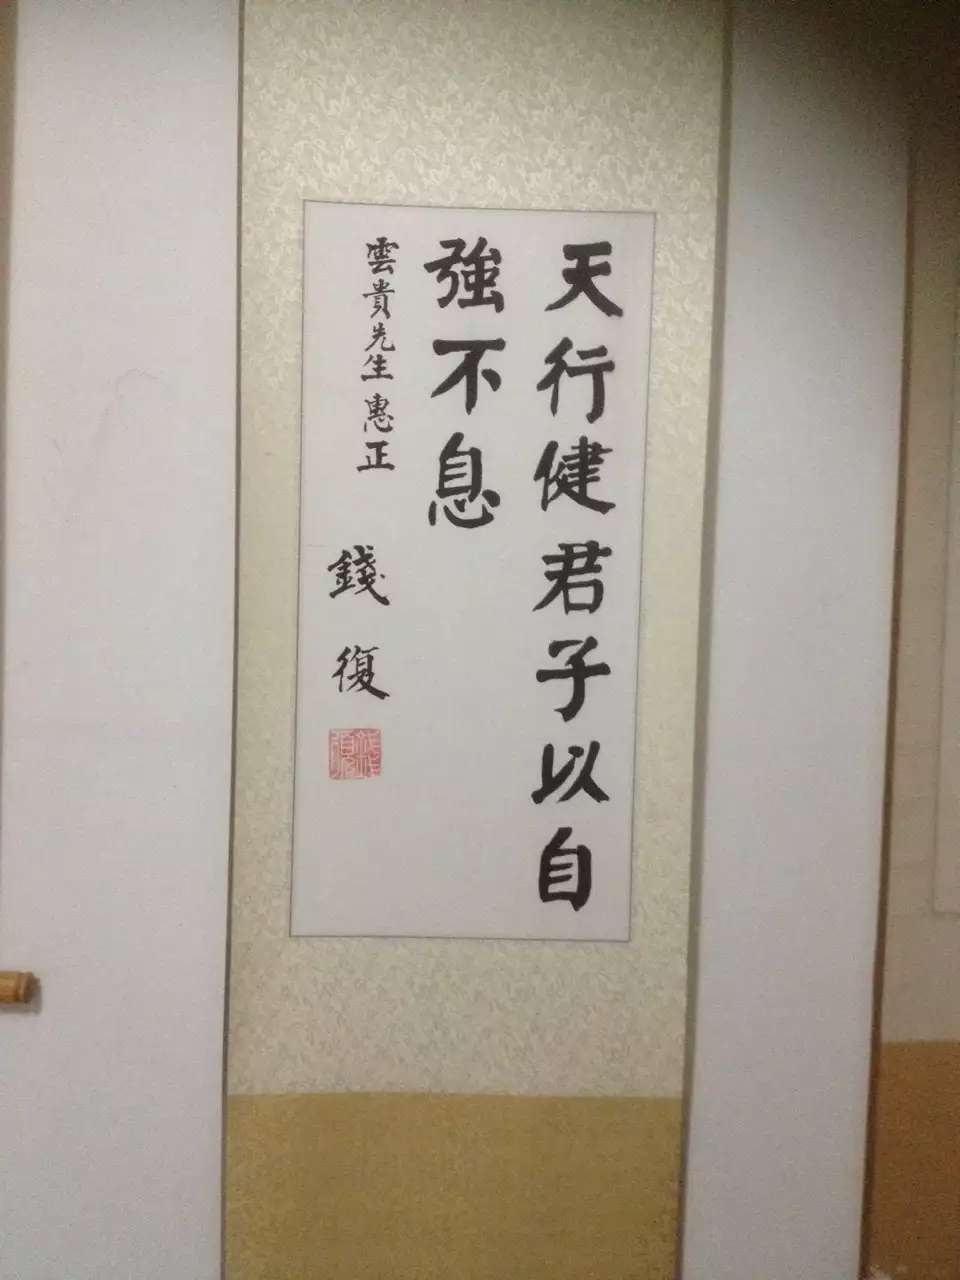 天行健君子以自
強不息
雲貴先生惠正
錢復